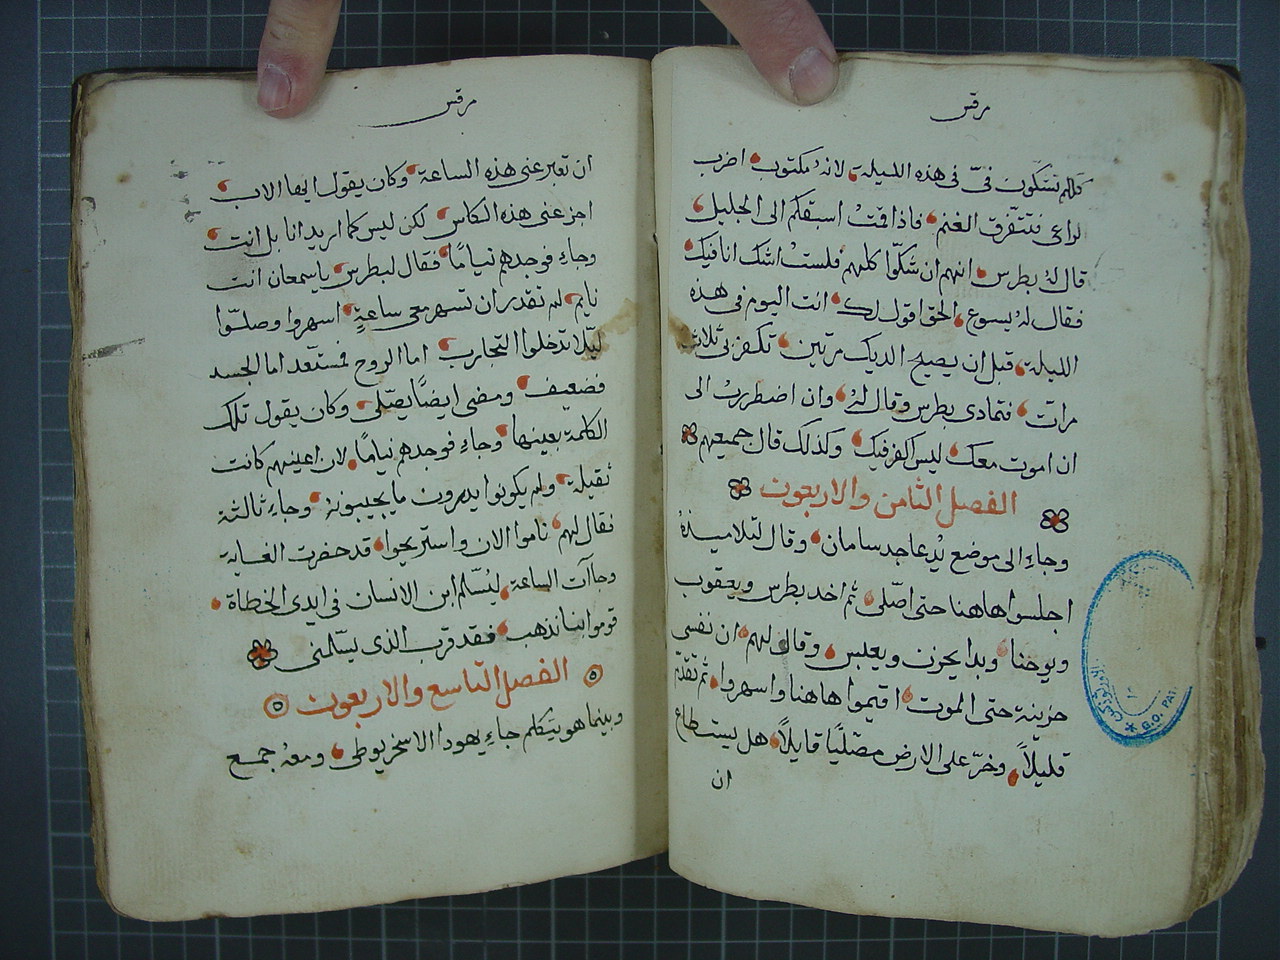 مرقس
كلكم تشكون فيّ في هذه الليلة، لانهُ مكتوب، اضرب
الراعي فتتفرق الغنم، فاذا قمتُ اسبقكم الى الجليل،
قال لهُ بطرس، انهم ان شكّوا كلهم فلستُ اشك انا فيك،
فقال لهُ يسوع، الحق اقول لك، انت اليوم في هذه
الليلة، قبل ان يصيح الديك مرتين، تكفر بي ثلاث
مرات، فتمادى بطرس وقال لهُ، وان اضطررتُ الى
ان اموت معك، ليس اكفر فيك، وكذلك قال جميعهم
الفصل الثامن والاربعون
وجاءِ الى موضع يُدعا جدسامان، وقال لتلاميذهُ
اجلسوا هاهنا حتى اصلّي، ثم اخد بطرس ويعقوب
ويوحنا، وبدا يحزن ويعبس، وقال لهم، ان نفسي
حزينة حتى الموت، اقيموا هاهنا واسهروا، ثم تقدّم
قليلاً، وخرّ على الارض مصلّيًا قايلاً، هل يستطاع
ان
مرقس
ان تعبر عني هذه الساعة، وكان يقول ايها الاب،
اجز عني هذه الكاس، لكن ليس كما اريد انا بل انت،
وجاءِ فوجدهم نيامًا، فقال لبطرس، ياسمعان انت
نايم، لم تقدر ان تسهر معي ساعةٍ، اسهروا وصلّوا
ليّلا تدخلوا التجارب، اما الروح فمستعد اما الجسد
فضعيف، ومضى ايضًا يصّلي، وكان يقول تلك
الكلمة بعينها، وجاءِ فوجدهم نيامًا، لان اعينهم كانت
ثقيلة، ولم يكونوا يدرون ما يجيبونهُ، وجاءِ ثالثة
فقال لهم، ناموا الان واستريحوا، قد حضرت الغاية
وجاآت الساعة، ليُسلّم ابن الانسان في ايدي الخطاة،
قوموا بنا نذهب، فقد قرب الذي يسّلمني
الفصل التاسع والاربعون
وبينما هو يتكلم جاءِ يهودا الاسخريوطي، ومعهُ جمع
G.O. PAT.